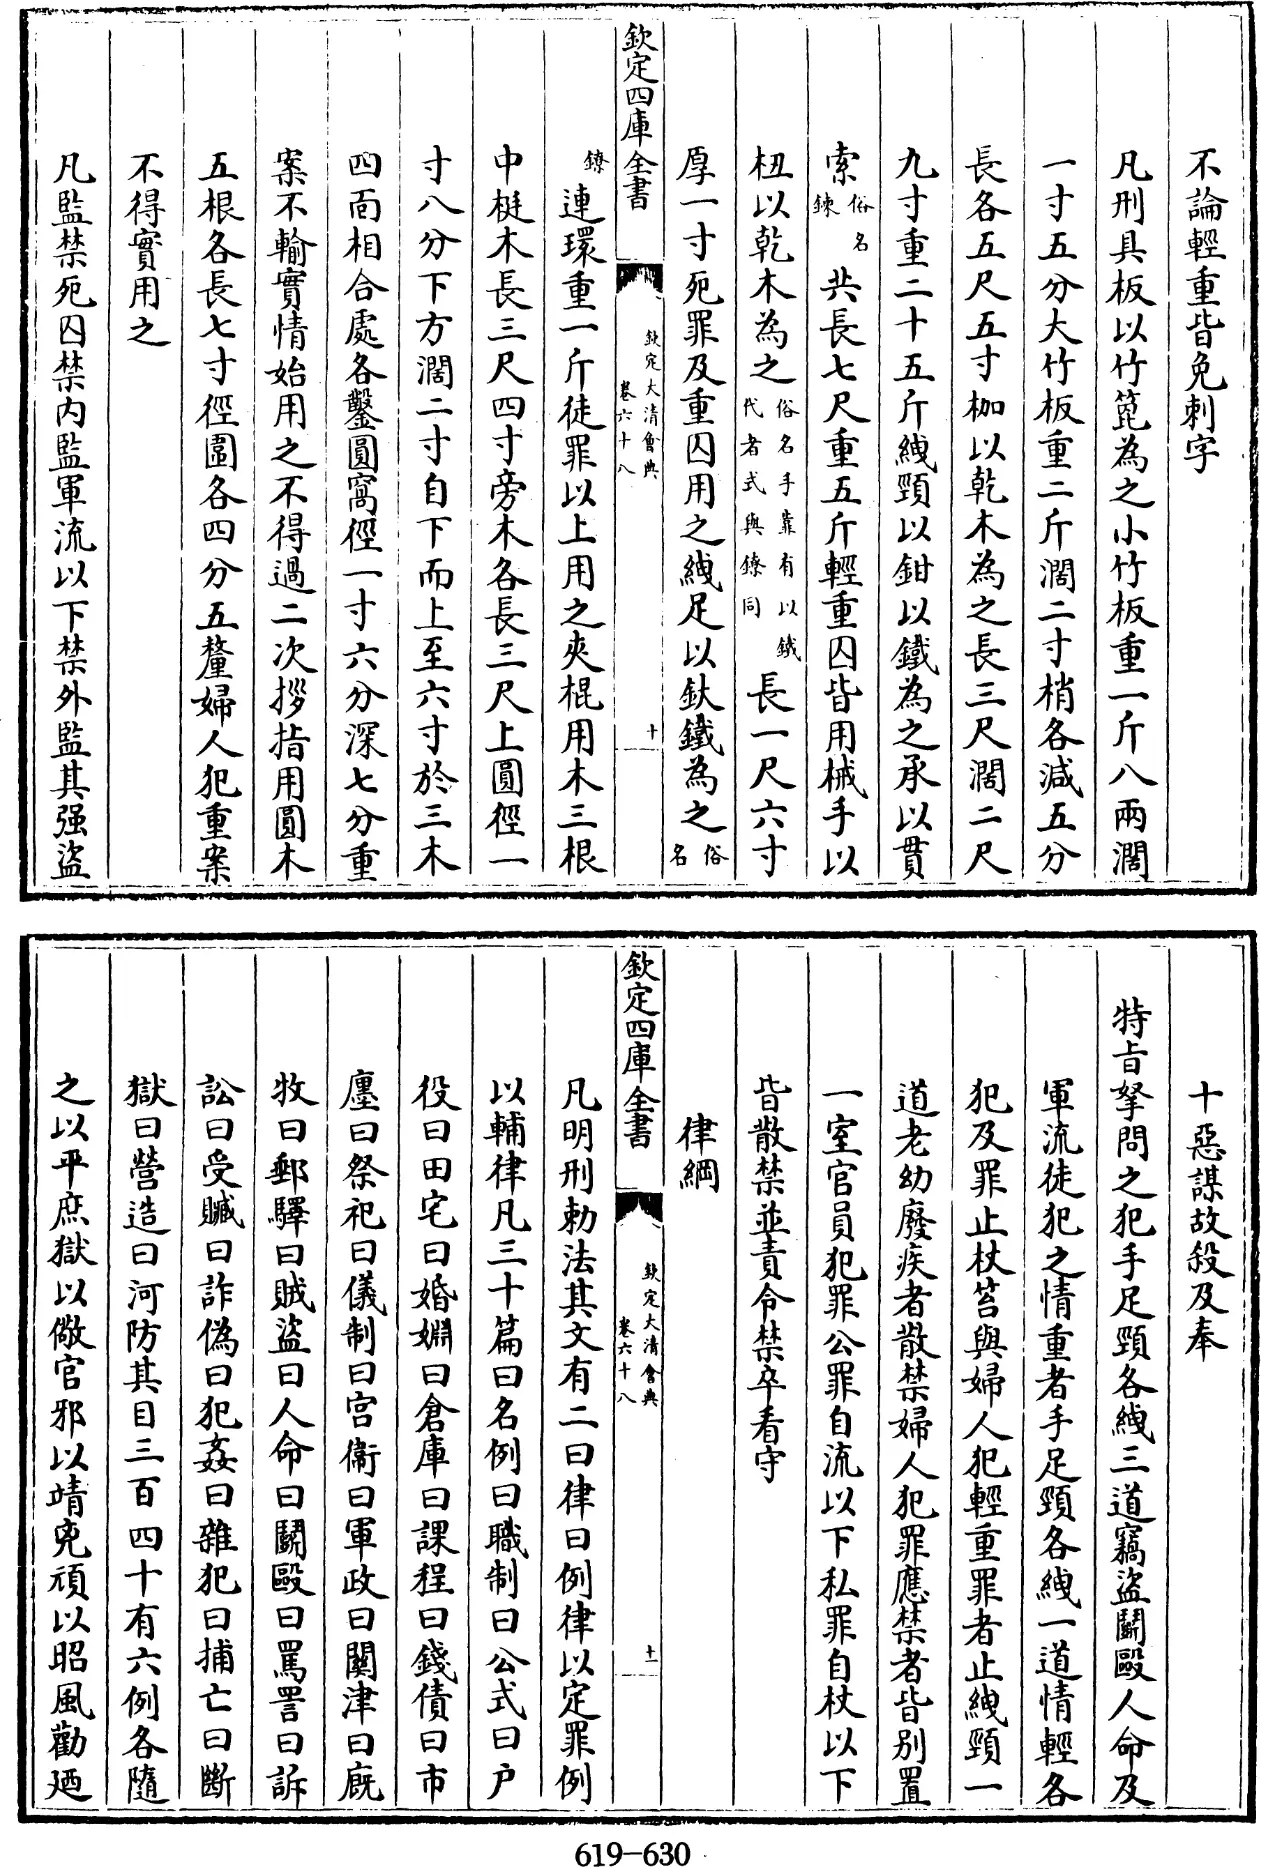 不論輕重皆免刺字
凡刑具板以竹篦為之小竹板重一斤八兩濶
一寸五分大竹板重二斤濶二寸梢各減五分
長各五尺五寸枷以乾木為之長三尺濶二尺
九寸重二十五斤絏頸以鉗以鐵為之承以貫
索俗名鍊共長七尺重五斤輕重囚皆用械手以
杻以乾木為之俗名手靠有以鐵代者式與鐐同長一尺六寸
厚一寸死罪及重囚用之絏足以鈦鐵為之俗名
欽定四庫全書
欽定大清會典
卷六十八
十
鐐連環重一斤徒罪以上用之夾棍用木三根
中梃木長三尺四寸旁木各長三尺上圓徑一
寸八分下方濶二寸自下而上至六寸於三木
四面相合處各鑿圓窩徑一寸六分深七分重
案不輸實情始用之不得過二次拶指用圓木
五根各長七寸徑圍各四分五釐婦人犯重案
不得實用之
凡監禁死囚禁内監軍流以下禁外監其强盜
十惡謀故殺及奉
特旨拏問之犯手足頸各絏三道竊盜鬭毆人命及
軍流徒犯之情重者手足頸各絏一道情輕各
犯及罪止杖笞與婦人犯輕重罪者止絏頸一
道老幼廢疾者散禁婦人犯罪應禁者皆別置
一室官員犯罪公罪自流以下私罪自杖以下
皆散禁並責令禁卒看守
律綱
欽定四庫全書
欽定大清會典
卷六十八
十一
凡明刑勅法其文有二曰律曰例律以定罪例
以輔律凡三十篇曰名例曰職制曰公式曰户
役曰田宅曰婚姻曰倉庫曰課程曰錢債曰市
廛曰祭祀曰儀制曰宫衞曰軍政曰關津曰廐
牧曰郵驛曰賊盜曰人命曰鬭毆曰罵詈曰訴
訟曰受贓曰詐偽曰犯姦曰雜犯曰捕亡曰斷
獄曰營造曰河防其目三百四十有六例各隨
之以平庶獄以儆官邪以靖兇頑以昭風勸廼
619-630